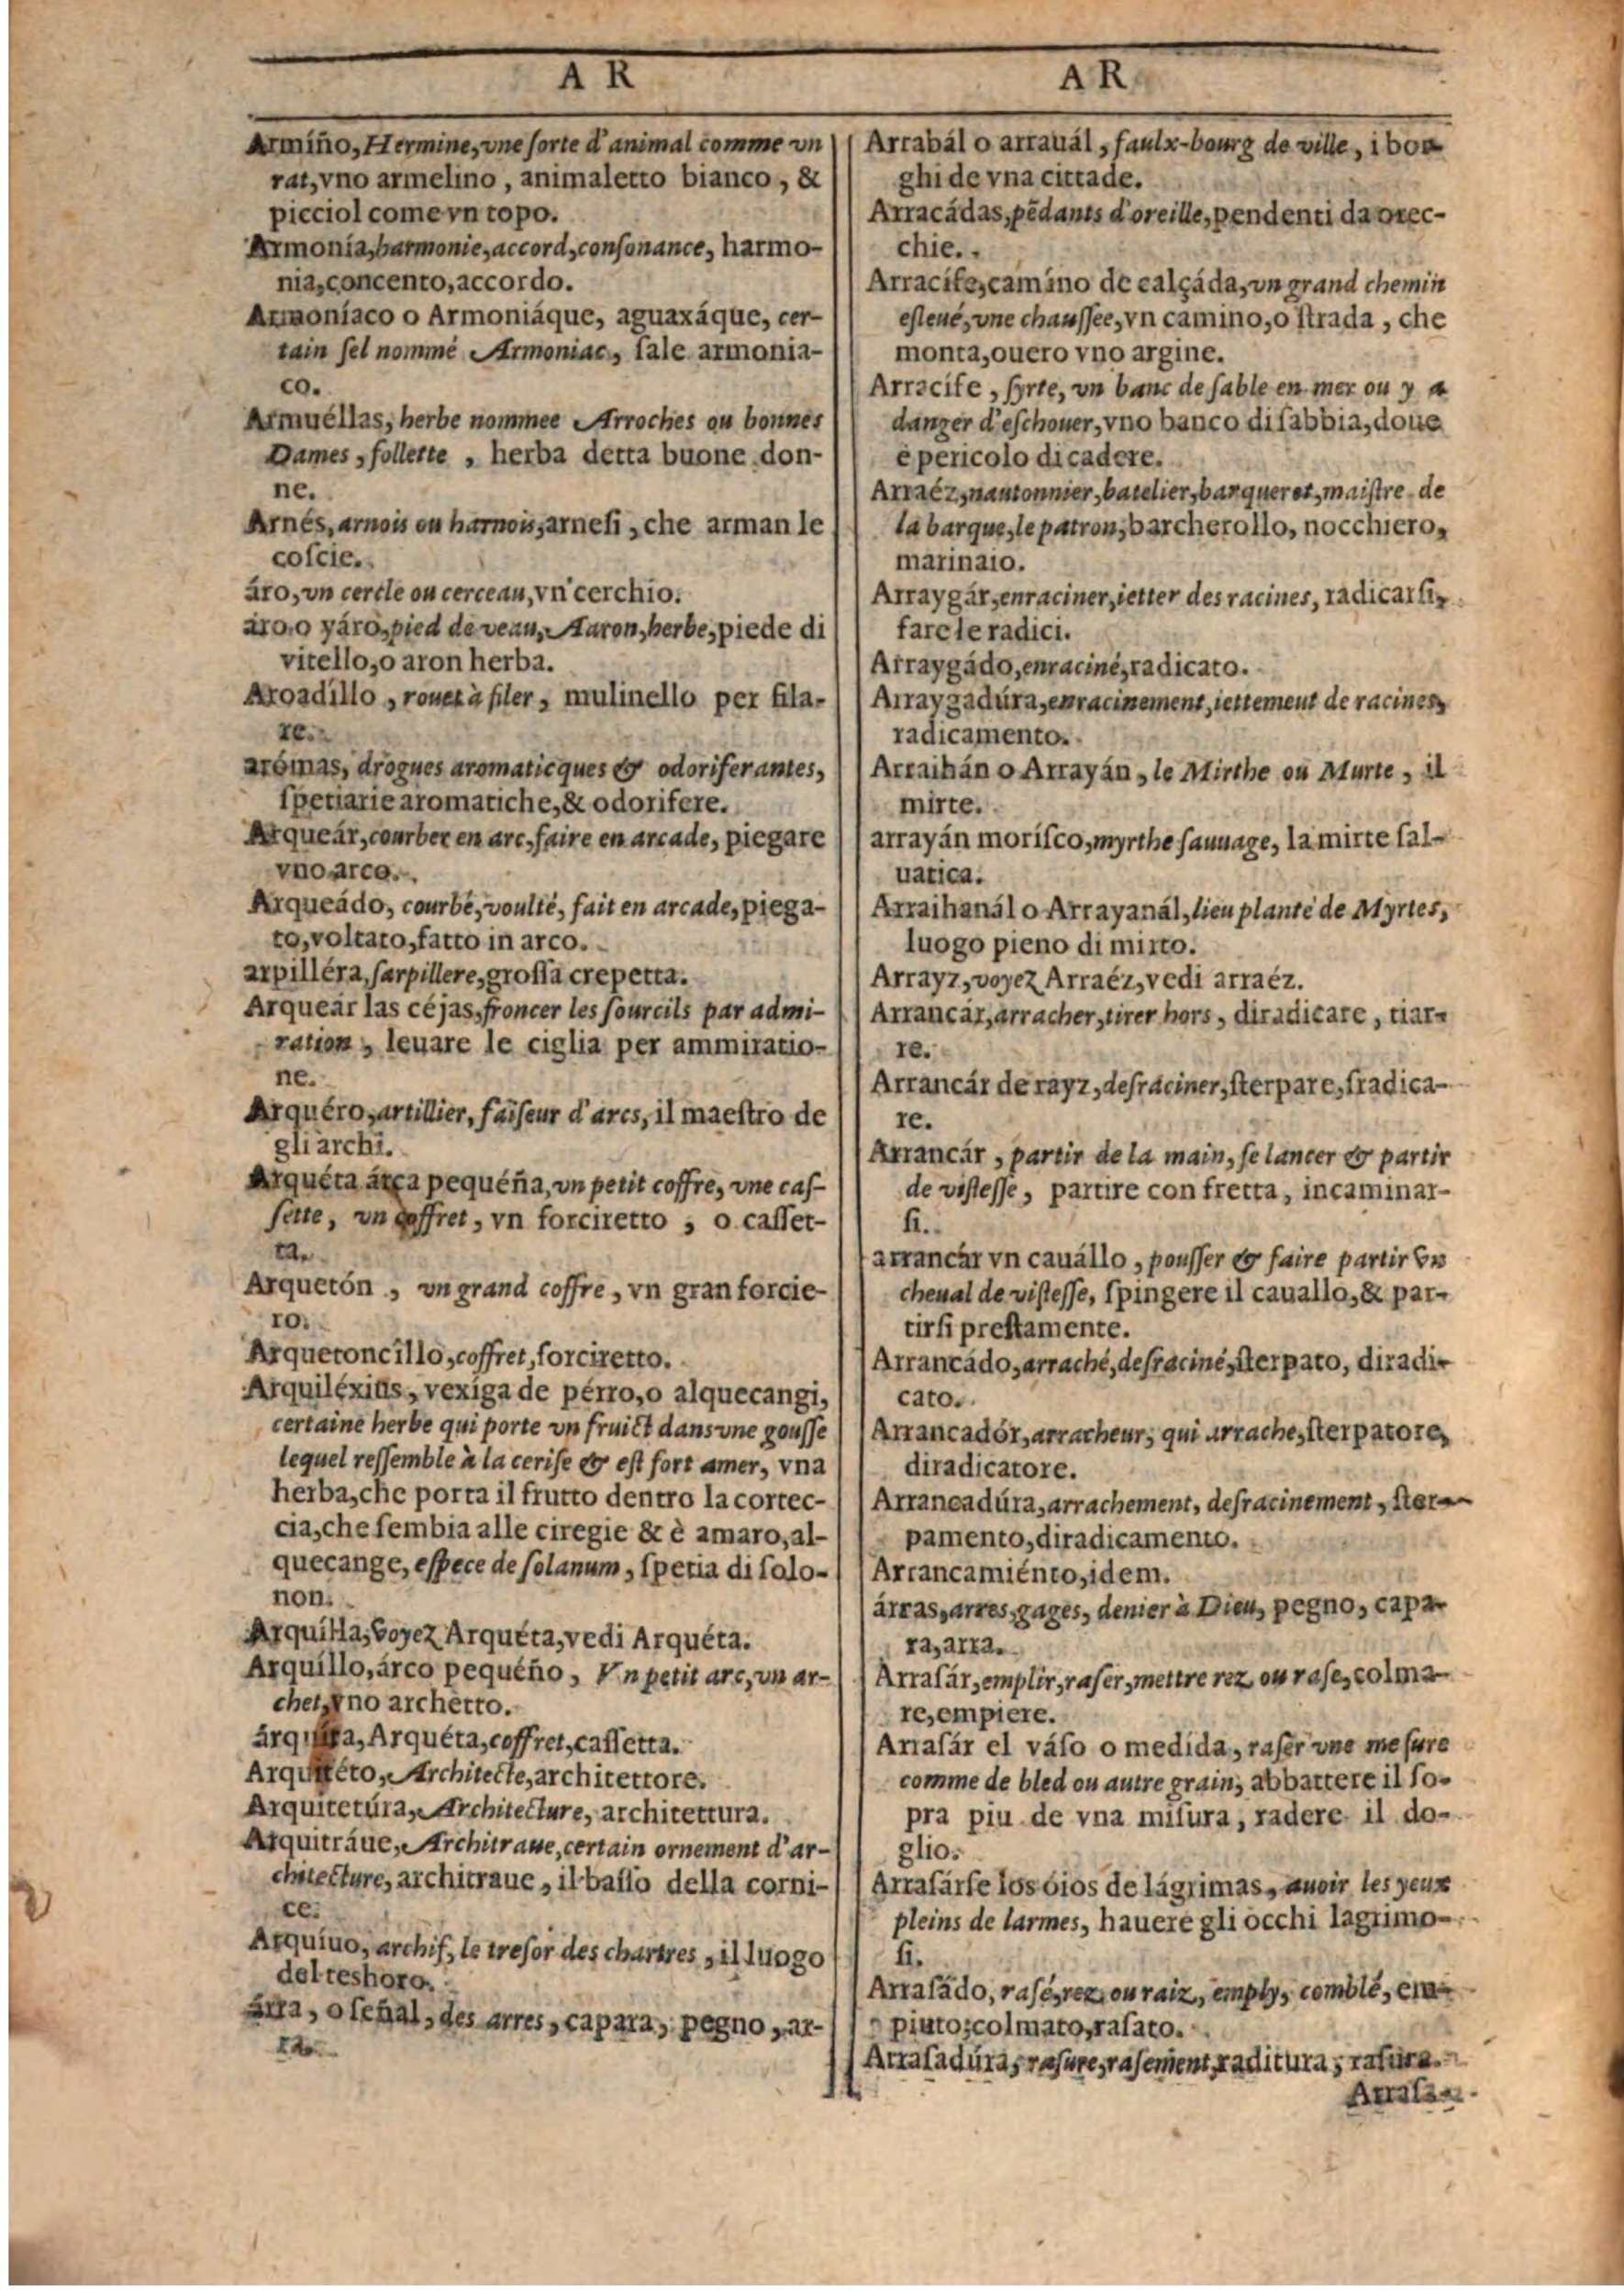 A R
Armíño, Hermine, vne ſorte d'animal comme vn
rat, vno armelino, animaletto bianco, &
picciol come vn topo.
Armonía, harmonie, accord, conſonance, harmo-
nia, concento, accordo.
Armoníaco o Armoniáque, aguaxáque, cer-
tain ſel nommé Armoniac, ſale armonia-
co.
Armuéllas, herbe nommee Arroches ou bonnes
Dames, follette, herba detta buone don-
ne.
Arnés, arnois ou harnois, arneſi, che arman le
coſcie.
áro, vn cercle ou cerceau, vn cerchio.
áro, o yáro, pied de veau, Aaron, herbe, piede di
vitello, o aron herba.
Aroadíllo, rouet à filer, mulinello per fila-
re.
arómas, drogues aromaticques & odoriferantes,
ſpetiarie aromatiche, & odorifere.
Arqueár, courber en arc, faire en arcade, piegare
vno arco.
Arqueádo, courbé, voulté, fait en arcade, piega-
to, voltato, fatto in arco.
arpilléra, ſarpillere, groſſa crepetta.
Arqueár las céjas, froncer les ſourcils par admi-
ration, leuare le ciglia per ammiratio-
ne.
Arquéro, artillier, faiſeur d'arcs, il maeſtro de
gli archi.
Arquéta árca pequéña, vn petit coffre, vne caſ-
ſette, vn coffret, vn forciretto, o caſſet-
ta.
Arquetón, vn grand coffre, vn gran forcie-
ro.
Arquetoncíllo, coffret, forciretto.
Arquiléxius, vexíga de pérro, o alquecangi,
certaine herbe qui porte vn fruict dans vne gouſſe
lequel reſſemble à la ceriſe & eſt fort amer, vna
herba, che porta il frutto dentro la cortec-
cia, che ſembia alle ciregie & è amaro, al-
quecange, eſpece de ſolanum, ſpetia di ſolo-
non.
Arquílla, voyez Arquéta, vedi Arquéta.
Arquíllo, árco pequéño, Vn petit arc, vn ar-
chet, vno archetto.
árquita, Arquéta, coffret, caſſetta.
Arquitéto, Architecte, architettore.
Arquitetúra, Architecture, architettura.
Arquitráue, Architraue, certain ornement d'ar-
chitecture, architraue, il baſſo della corni-
ce.
Arquíuo, archif, le treſor des chartres, il luogo
del teshoro.
árra, o ſeñal, des arres, capara, pegno, ar-
ra.
A R
Arrabál o arrauál, faulx-bourg de ville, i bor-
ghi de vna cittade.
Arracádas, pẽdants d'oreille, pendenti da orec-
chie.
Arracífe, camíno de calçáda, vn grand chemin
eſleué, vne chauſſee, vn camino, o ſtrada, che
monta, ouero vno argine.
Arracífe, ſyrte, vn banc de ſable en mer ou y a
danger d'eſchouer, vno banco di ſabbia, doue
è pericolo di cadere.
Arraéz, nautonnier, batelier, barquerot, maiſtre de
la barque, le patron, barcherollo, nocchiero,
marinaio.
Arraygár, enraciner, ietter des racines, radicarſi,
fare le radici.
Arraygádo, enraciné, radicato.
Arraygadúra, enracinement, iettement de racines,
radicamento.
Arraihán o Arrayán, le Mirthe ou Murte, il
mirte.
arrayán moríſco, myrthe ſauuage, la mirte ſal-
uatica.
Arraihanál o Arrayanál, lieu planté de Myrtes,
luogo pieno di mirto.
Arrayz, voyez Arraéz, vedi arraéz.
Arrancár, arracher, tirer hors, diradicare, tiar-
re.
Arrancár de rayz, deſraciner, ſterpare, ſradica-
re.
Arrancár, partir de la main, ſe lancer & partir
de viſteſſe, partire con fretta, incaminar-
ſi.
arrancár vn cauállo, pouſſer & faire partir vn
cheual de viſteſſe, ſpingere il cauallo, & par-
tirſi preſtamente.
Arrancádo, arraché, deſraciné, ſterpato, diradi-
cato.
Arrancadór, arracheur, qui arrache, ſterpatore,
diradicatore.
Arrancadúra, arrachement, deſracinement, ſter-
pamento, diradicamento.
Arrancamiénto, idem.
árras, arres, gages, denier à Dieu, pegno, capa-
ra, arra.
Arraſár, emplir, raſer, mettre rez ou raſe, colma-
re, empiere.
Arraſár el váſo o medida, raſer vne meſure
comme de bled ou autre grain, abbattere il ſo-
pra piu de vna miſura, radere il do-
glio.
Arraſárſe los óios de lágrimas, auoir les yeux
pleins de larmes, hauere gli occhi lagrimo-
ſi.
Arraſádo, raſé, rez, ou raiz, emply, comblé, em-
piuto, colmato, raſato.
Arraſadúra, raſure, raſement, raditura, raſura.
Arraſa-